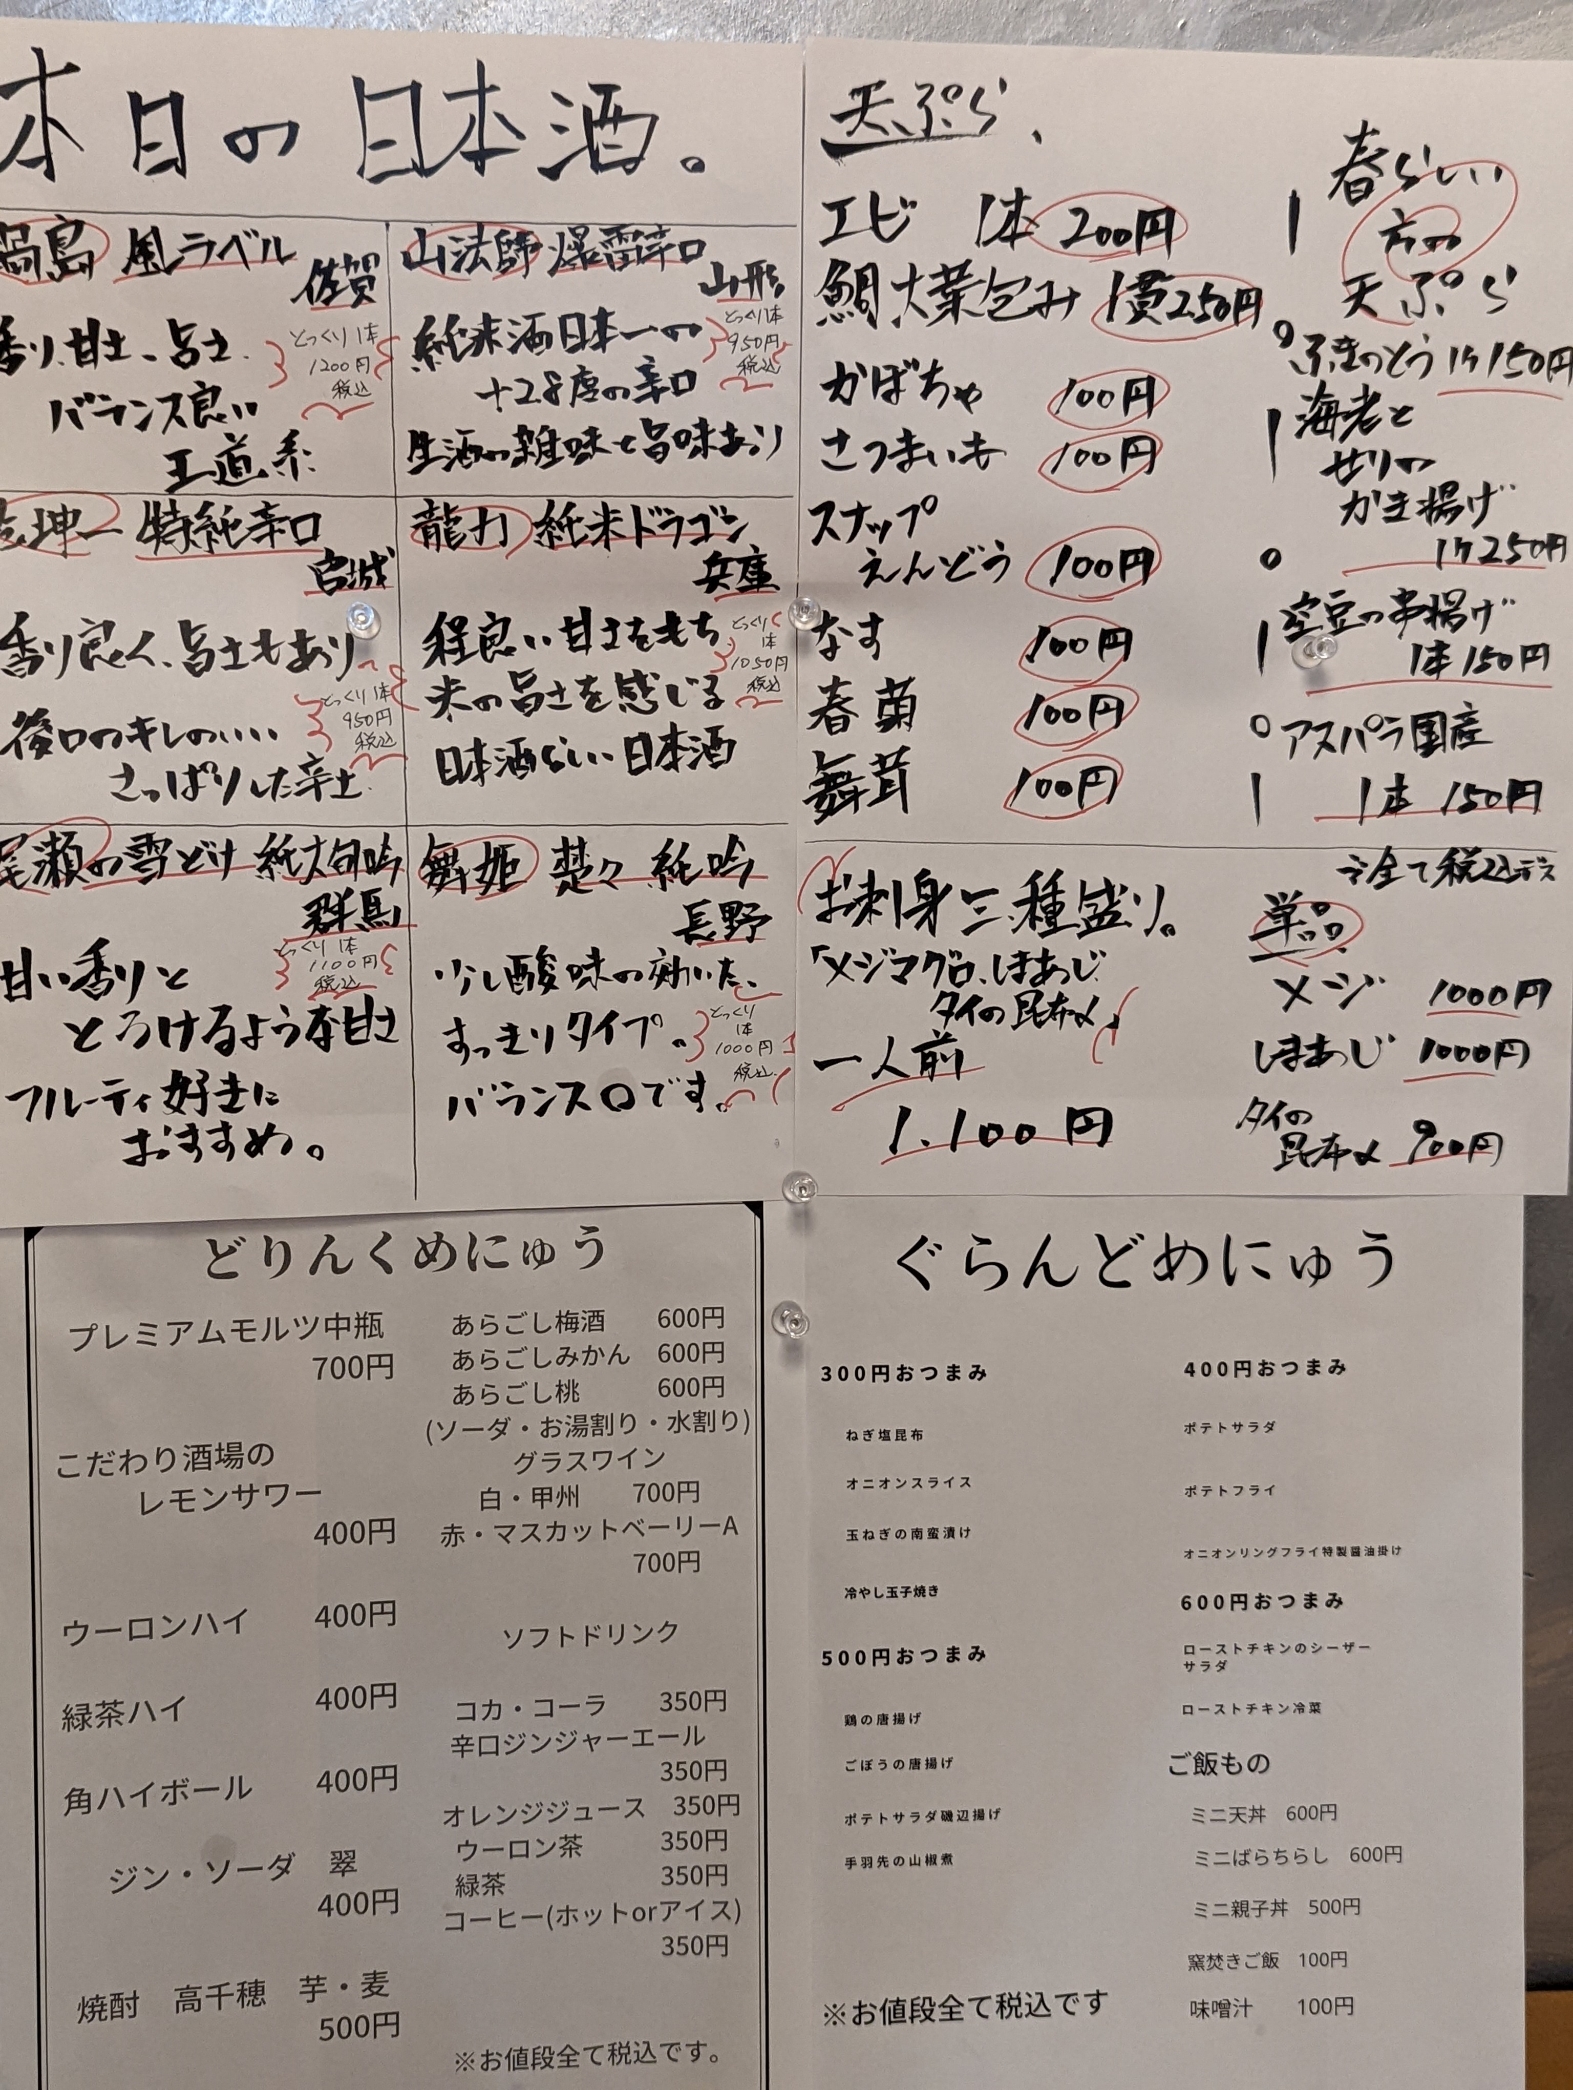 本日の日本酒。
鍋島 風ラベル
佐賀
香り、甘さ、旨さ、
バランス良い
王道系
とっくり1本
1200円
税込
山法師 爆雷辛口
山形
純米酒日本一の
+28度の辛口
生酒の雑味と旨味あり
とっくり1本
950円
税込
乾坤一 特純辛口
宮城
香り良く、旨さもあり
後口のキレのいい
さっぱりした辛さ
とっくり1本
950円
税込
龍力 純米ドラゴン
兵庫
程良い甘さをもち
米の旨さを感じる
日本酒らしい日本酒
とっくり
1本
1050円
税込
尾瀬の雪どけ 純大吟
群馬
甘い香りと
とろけるような甘さ
フルーティ好きに
おすすめ。
とっくり1本
1100円
税込
舞姫 楚々 純吟
長野
少し酸味の効いた、
すっきりタイプ。
バランス〇です。
とっくり
1本
1000円
税込
天ぷら、
エビ 1本 200円
鯛大葉包み 1貫250円
かぼちゃ 100円
さつまいも 100円
スナップ
えんどう 100円
なす 100円
春菊 100円
舞茸 100円
春らしい
方の
天ぷら
ふきのとう 1ケ150円
海老と
せりの
かき揚げ
1ケ250円
空豆の串揚げ
1本150円
アスパラ国産
1本 150円
全て税込デス
お刺身三種盛り。
「メジマグロ、しまあじ
タイの昆布〆」
一人前
1,100円
単品
メジ 1000円
しまあじ 1000円
タイの
昆布〆 900円
どりんくめにゅう
プレミアムモルツ中瓶
700円
こだわり酒場の
レモンサワー
400円
ウーロンハイ 400円
緑茶ハイ 400円
角ハイボール 400円
ジン・ソーダ 翠
400円
焼酎 高千穂 芋・麦
500円
あらごし梅酒 600円
あらごしみかん 600円
あらごし桃 600円
(ソーダ・お湯割り・水割り)
グラスワイン
白・甲州 700円
赤・マスカットベーリーA
700円
ソフトドリンク
コカ・コーラ 350円
辛口ジンジャーエール
350円
オレンジジュース 350円
ウーロン茶 350円
緑茶 350円
コーヒー(ホットorアイス)
350円
※お値段全て税込です。
ぐらんどめにゅう
300円おつまみ
ねぎ塩昆布
オニオンスライス
玉ねぎの南蛮漬け
冷やし玉子焼き
500円おつまみ
鶏の唐揚げ
ごぼうの唐揚げ
ポテトサラダ磯辺揚げ
手羽先の山椒煮
※お値段全て税込です
400円おつまみ
ポテトサラダ
ポテトフライ
オニオンリングフライ特製醤油掛け
600円おつまみ
ローストチキンのシーザー
サラダ
ローストチキン冷菜
ご飯もの
ミニ天丼 600円
ミニばらちらし 600円
ミニ親子丼 500円
窯焚きご飯 100円
味噌汁 100円